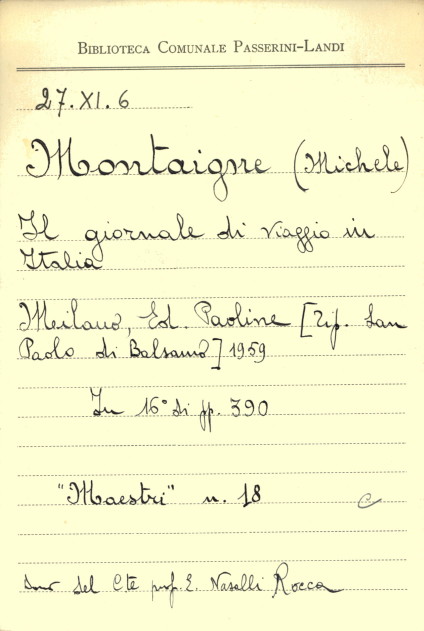 BIBLIOTECA COMUNALE PASSERINI-LANDI
27.XI.6
Montaigne (Michele)
Il giornale di viaggio in
Italia
Milano, Ed. Paoline [Tip. San
Paolo di Balsamo] 1959
In 16° di pp. 390
"Maestri" n. 18
C
del Cte prof. E. Naselli Rocca